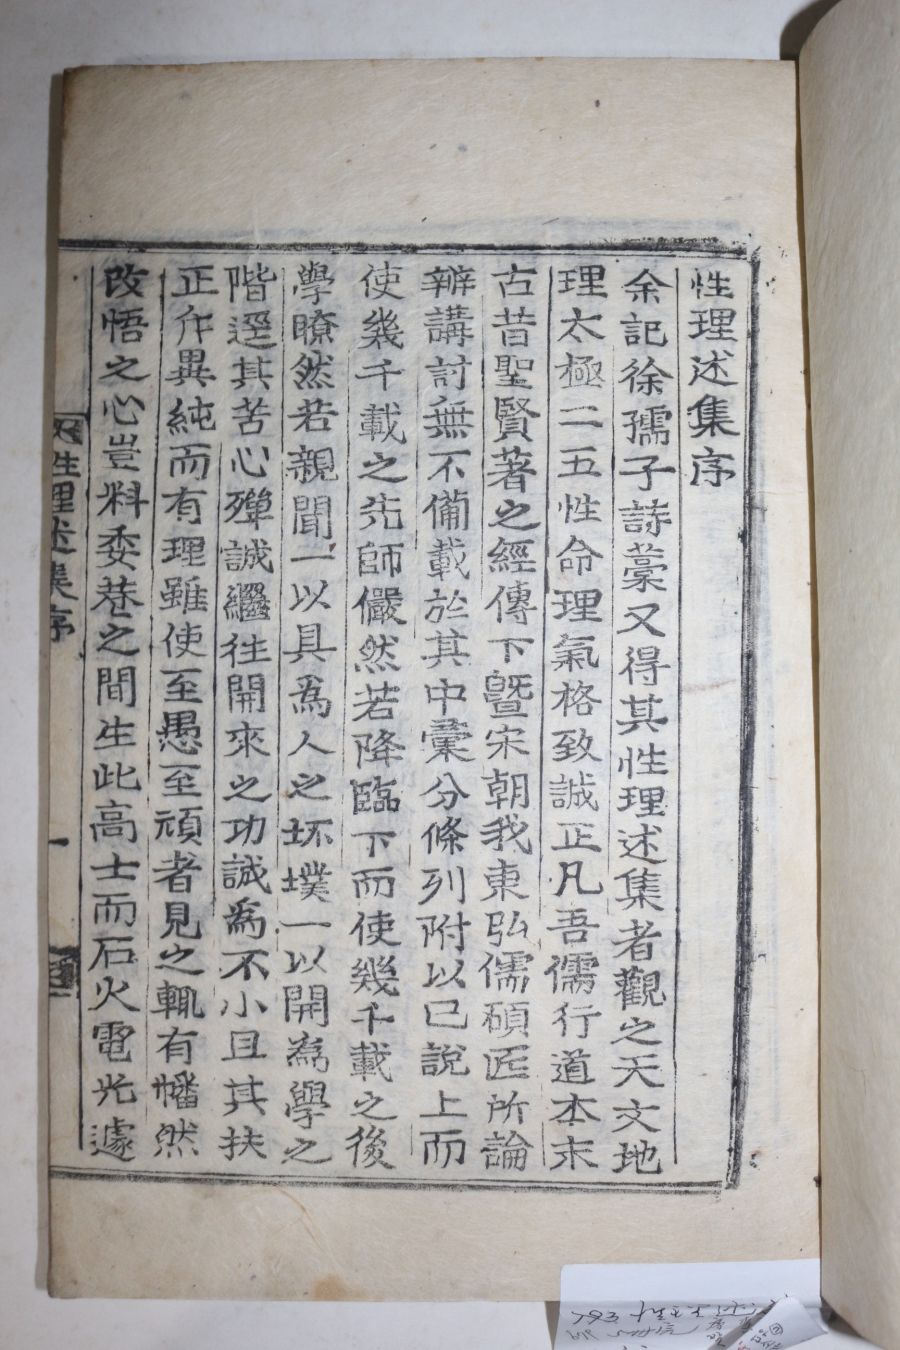 性理述集序
余記徐孺子詩藁又得其性理述集者觀之天文地
理太極二五性命理氣格致誠正凡吾儒行道本末
古昔聖賢著之經傳下曁宋朝我東弘儒碩匠所論
辨講討無不備載於其中彙分條列附以已說上而
使幾千載之先師儼然若降臨下而使幾千載之後
學瞭然若親聞一以具爲人之坏墣一以開爲學之
階逕其苦心殫誠繼往開來之功誠爲不小且其扶
正斥異純而有理雖使至愚至頑者見之輒有幡然
改悟之心豈料委巷之間生此高士而石火電光遽
性理述集序
一